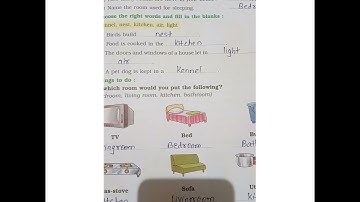 Name the room used for sleeping. Bedr
oose the right words and fill in the blanks :
nnel, nest, kitchen, air, light
Birds build nest
Food is cooked in the kitchen
The doors and windows of a house let in light
air
A pet dog is kept in a Kennel
ngs to do :
which room would you put the following?
droom, living room, kitchen, bathroom)
TV Bed Bu
ingroom Bedroom Bath
as-stove Sofa Ut
tchen Livingroom Ki